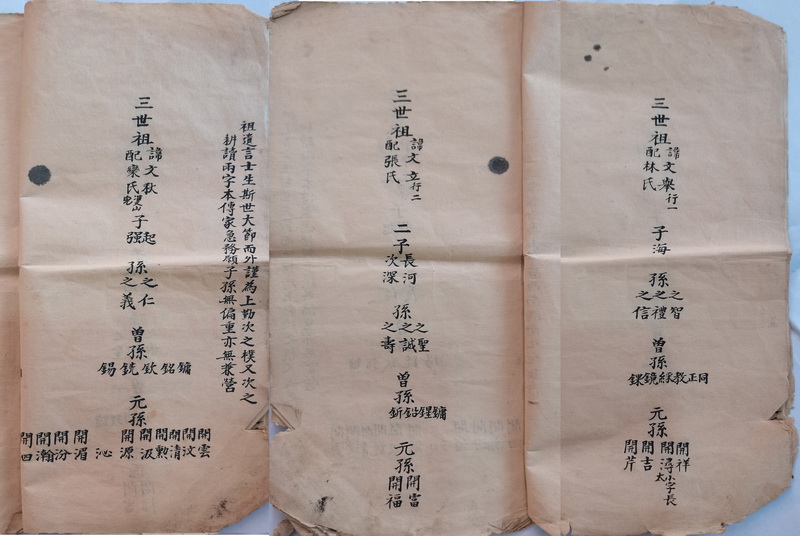 三世祖
諱文舉行一
配林氏
子海
孫
之智
之禮
之信
曾孫
同正教綵鏡錁
元孫
開祥
開潯
小字長太
開吉
開芹
三世祖
諱文立行二
配張氏
二子
長河
次深
孫
之聖
之誠
之壽
曾孫
鏞鑃鉆釿
元孫
開富
開福
祖遺言士生斯世大節而外謹為上勤次之樸又次之
耕讀兩字本傳家急務願子孫無偏重亦無兼營
三世祖
諱文秋
配欒氏
子
起
强
孫
之仁
之義
曾孫
鏞銘欽銑錫
元孫
開雲
開汶
開清
開勲
開汲
開源
沁
開湄
開汾
開瀚
開四